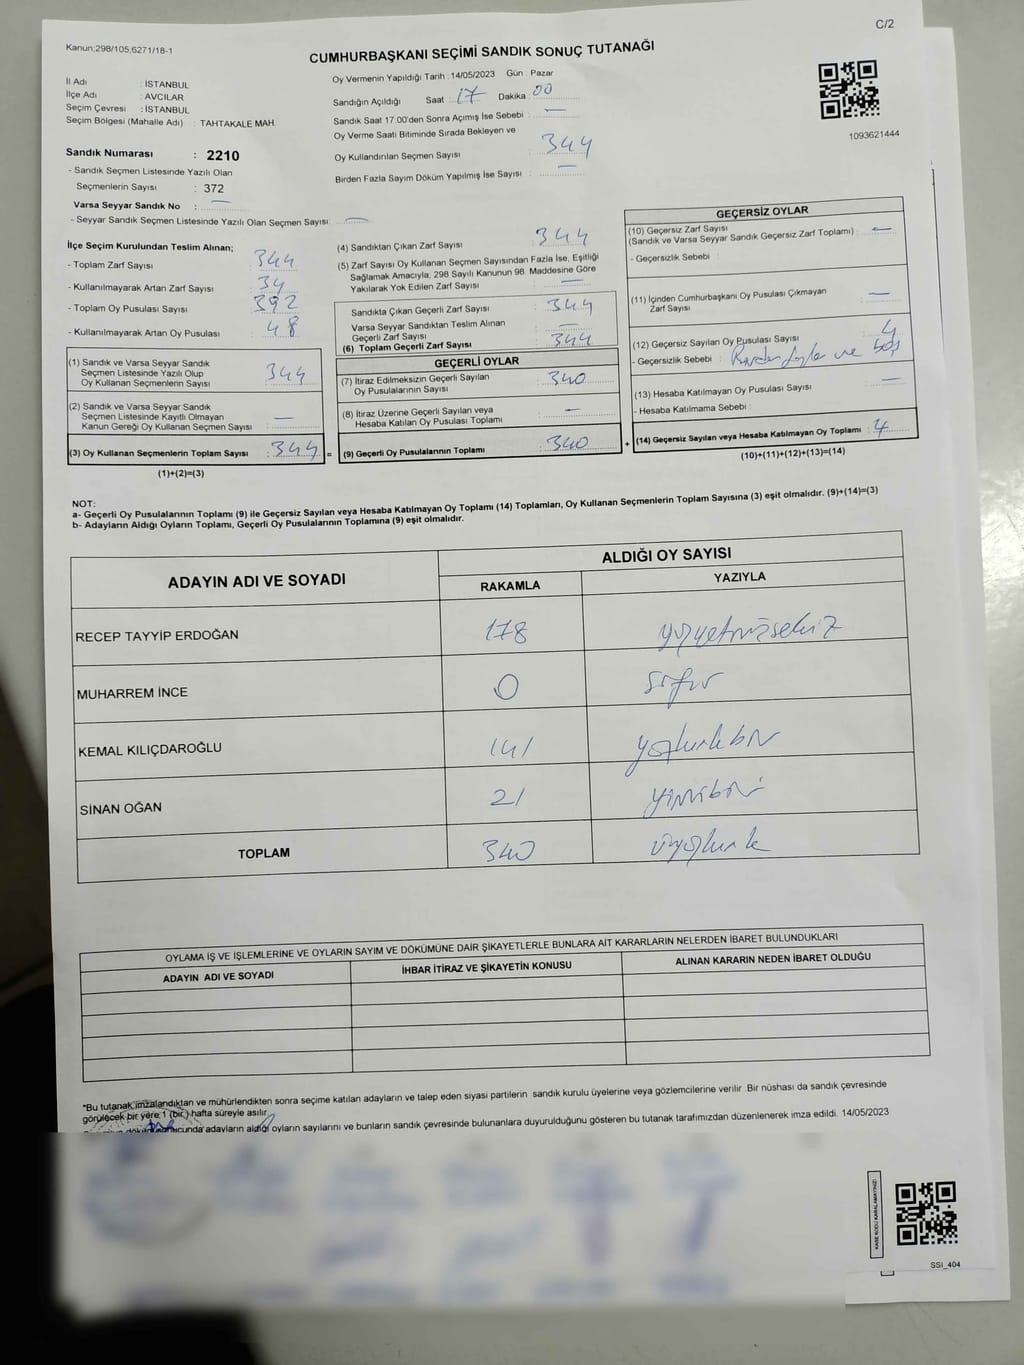 C/2
Kanun;298/105,6271/18-1
CUMHURBAŞKANI SEÇİMİ SANDIK SONUÇ TUTANAĞI
İl Adı : İSTANBUL
İlçe Adı : AVCILAR
Seçim Çevresi : İSTANBUL
Seçim Bölgesi (Mahalle Adı) : TAHTAKALE MAH.
Sandık Numarası : 2210
- Sandık Seçmen Listesinde Yazılı Olan
Seçmenlerin Sayısı : 372
Varsa Seyyar Sandık No : —
- Seyyar Sandık Seçmen Listesinde Yazılı Olan Seçmen Sayısı: —
Oy Vermenin Yapıldığı Tarih : 14/05/2023 Gün : Pazar
Sandığın Açıldığı Saat : 17 Dakika : 00
Sandık Saat 17.00'den Sonra Açımış İse Sebebi : —
Oy Verme Saati Bitiminde Sırada Bekleyen ve
Oy Kullandırılan Seçmen Sayısı : 344
Birden Fazla Sayım Döküm Yapılmış İse Sayısı : —
1093621444
İlçe Seçim Kurulundan Teslim Alınan;
- Toplam Zarf Sayısı : 344
- Kullanılmayarak Artan Zarf Sayısı : 34
- Toplam Oy Pusulası Sayısı : 392
- Kullanılmayarak Artan Oy Pusulası : 48
(1) Sandık ve Varsa Seyyar Sandık
Seçmen Listesinde Yazılı Olup
Oy Kullanan Seçmenlerin Sayısı : 344
(2) Sandık ve Varsa Seyyar Sandık
Seçmen Listesinde Kayıtlı Olmayan
Kanun Gereği Oy Kullanan Seçmen Sayısı : —
(3) Oy Kullanan Seçmenlerin Toplam Sayısı : 344 =
(1)+(2)=(3)
(4) Sandıktan Çıkan Zarf Sayısı : 344
(5) Zarf Sayısı Oy Kullanan Seçmen Sayısından Fazla İse, Eşitliği
Sağlamak Amacıyla; 298 Sayılı Kanunun 98. Maddesine Göre
Yakılarak Yok Edilen Zarf Sayısı : —
Sandıkta Çıkan Geçerli Zarf Sayısı : 344
Varsa Seyyar Sandıktan Teslim Alınan
Geçerli Zarf Sayısı : —
(6) Toplam Geçerli Zarf Sayısı : 344
GEÇERLİ OYLAR
(7) İtiraz Edilmeksizin Geçerli Sayılan
Oy Pusulalarının Sayısı : 340
(8) İtiraz Üzerine Geçerli Sayılan veya
Hesaba Katılan Oy Pusulası Toplamı : —
(9) Geçerli Oy Pusulalarının Toplamı : 340 +
GEÇERSİZ OYLAR
(10) Geçersiz Zarf Sayısı
(Sandık ve Varsa Seyyar Sandık Geçersiz Zarf Toplamı) : —
- Geçersizlik Sebebi :
(11) İçinden Cumhurbaşkanı Oy Pusulası Çıkmayan
Zarf Sayısı : —
(12) Geçersiz Sayılan Oy Pusulası Sayısı : 4
- Geçersizlik Sebebi : ve boş
(13) Hesaba Katılmayan Oy Pusulası Sayısı : —
- Hesaba Katılmama Sebebi :
(14) Geçersiz Sayılan veya Hesaba Katılmayan Oy Toplamı : 4
(10)+(11)+(12)+(13)=(14)
NOT:
a- Geçerli Oy Pusulalarının Toplamı (9) ile Geçersiz Sayılan veya Hesaba Katılmayan Oy Toplamı (14) Toplamları, Oy Kullanan Seçmenlerin Toplam Sayısına (3) eşit olmalıdır. (9)+(14)=(3)
b- Adayların Aldığı Oyların Toplamı, Geçerli Oy Pusulalarının Toplamına (9) eşit olmalıdır.
ADAYIN ADI VE SOYADI ALDIĞI OY SAYISI
RAKAMLA YAZIYLA
RECEP TAYYİP ERDOĞAN 178 yüzyetmişsekiz
MUHARREM İNCE 0 sıfır
KEMAL KILIÇDAROĞLU 141 yüzkırkbir
SİNAN OĞAN 21 yirmibir
TOPLAM 340 üçyüzkırk
OYLAMA İŞ VE İŞLEMLERİNE VE OYLARIN SAYIM VE DÖKÜMÜNE DAİR ŞİKAYETLERLE BUNLARA AİT KARARLARIN NELERDEN İBARET BULUNDUKLARI
ADAYIN ADI VE SOYADI İHBAR İTİRAZ VE ŞİKAYETİN KONUSU ALINAN KARARIN NEDEN İBARET OLDUĞU
*Bu tutanak imzalandıktan ve mühürlendikten sonra seçime katılan adayların ve talep eden siyasi partilerin sandık kurulu üyelerine veya gözlemcilerine verilir. Bir nüshası da sandık çevresinde
görülecek bir yere 1 (bir) hafta süreyle asılır.
adayların aldığı oyların sayılarını ve bunların sandık çevresinde bulunanlara duyurulduğunu gösteren bu tutanak tarafımızdan düzenlenerek imza edildi. 14/05/2023
KARE KODU KARALAMAYINIZ!
SSI_404